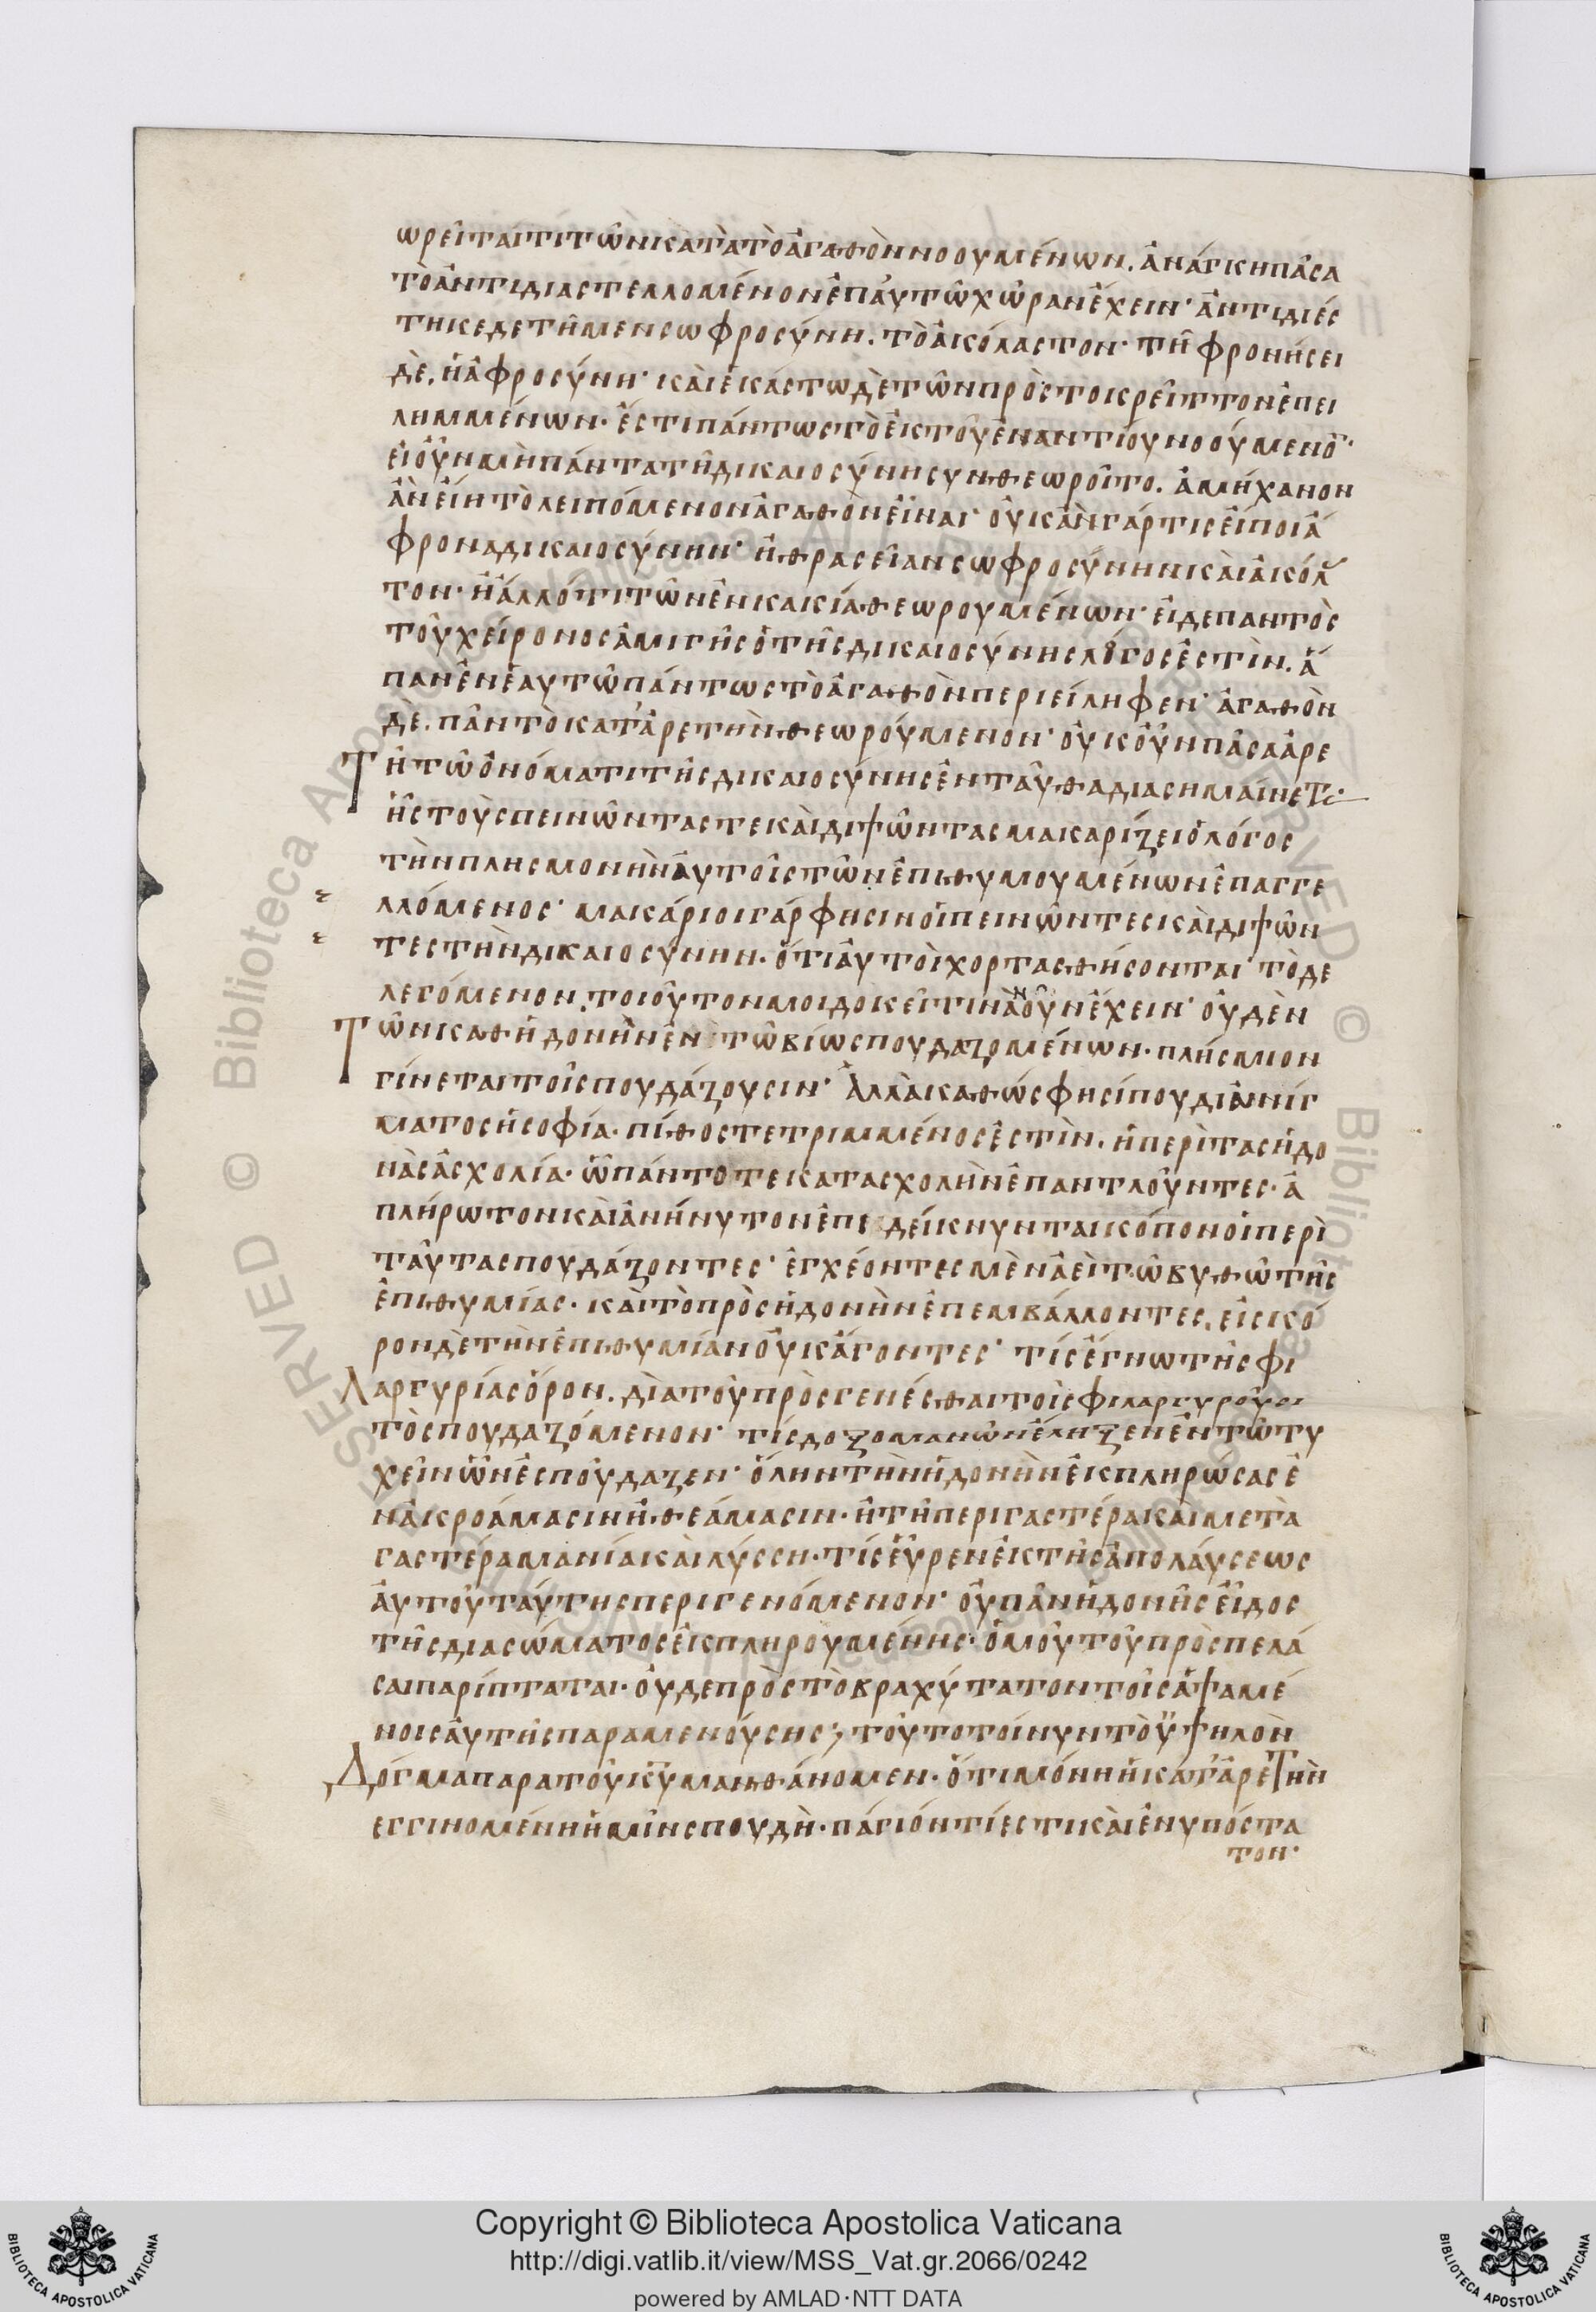 ωρεῖταίτιτῶνκατὰτὸἀγαθὸννοουμένων. ἀνάγκηπᾶσα
τὸἀντιδιαστελλομένονἐπ'ἀυτῶχώρανἔχειν· ἀντιδιές
τηκεδετῆμενσωφροσύνη. τὸἀκόλαστον· τῆφρονήσει
δὲ. ἡἀφροσύνη· κὰιἑκάστωδὲτῶνπρὸςτοκρεῖττονἐπει
λημμένων· ἔστιπάντωςτὸἐκτοῦἐναντίουνοούμενο̄·
εἰοὖνμὴπάντατῆδικαιοσύνησυνθεωροῖτο. ἀμήχανον
ἂνεἴητὸλειπόμενονἀγαθὸνεἶναι· οὐκἂνγάρτιςεἴποιἄ
φροναδικαιοσύνην· ἢθρασεῖανσωφροσύνηνκὰιἀκόλασ
τον· ἢἄλλότιτῶνἐνκακίαθεωρουμένων· εἰδεπαντὸς
τοῦχείρονοςἀμιγὴςὁτῆςδικαιοσύνηςλόγοςἐστὶν. ἅ
πανἐνἑαυτῶπάντωςτὸἀγαθὸνπεριείληφεν· ἀγαθὸν
δὲ. πᾶντὸκατ'ἀρετὴνθεωρούμενον· οὐκοῦνπᾶσαἀρε
Τὴτῶὀνόματιτῆςδικαιοσύνηςἐνταῦθαδιασημαίνεται·
ἧςτοὺςπεινῶντάςτεκὰιδιψῶνταςμακαρίζειὁλόγος
τὴνπλησμονὴνἀυτοῖςτῶνἐπιθυμουμένωνἐπαγγε
λλόμενος· μακάριοιγάρφησινοἱπεινῶντεςκὰιδιψῶν
τεςτὴνδικαιοσύνην. ὅτιἀυτοὶχορτασθήσονται· τὸδε
λεγόμενον. τοιοῦτονμοιδοκεῖτινὰνοῦνἔχειν· οὐδὲν
Τῶνκαθἡδονὴνἐντῶβίωσπουδαζομένων. πλήσμιον
γίνεταιτοῖςσπουδάζουσιν· ἀλλὰκαθώςφησίπουδιἀινίγ
ματοςἡσοφία. πίθοςτετριμμένοςἐστὶν. ἡπερὶταςἡδο
νὰςἀσχολία. ὧπάντοτεκατασχολὴνἐπαντλοῦντες. ἀ
πλήρωτονκὰιἀνήνυτονἐπεδείκνυνταικόπονοἱπερὶ
ταῦτασπουδάζοντες· ἐγχέοντεςμὲνἀεὶτῶβυθῶτῆς
ἐπιθυμίας. κὰιτὸπρὸςἡδονὴνἐπεμβάλλοντες. εἰςκό
ρονδὲτὴνἐπιθυμίανοὐκἄγοντες· τίςἔγνωτῆςφι
λαργυρίαςὅρον. διὰτοῦπρὸςγενέσθαιτοῖςφιλαργυροῦσι
τὸσπουδαζόμενον· τίςδοξομανῶνἔληξενἐντῶτυ
χεῖνὧνἐσπούδαζεν· ὅληντὴνἡδονὴνἐκπληρώσαςἐ
νἀκροάμασινἢθεάμασιν. ἢτῆπεριγαστέρακὰιμετὰ
γαστέραμανίακὰιλύσση. τίςεὗρενἐκτῆςἀπολάυσεως
ἀυτοῦταύτηςπεριγενόμενον· οὐπᾶνἡδονῆςεἶδος
τῆςδιασώματοςἐκπληρουμένης. ὁμοῦτοῦπρόσπελά
σαιπαρίπταται. οὐδεπρὸςτὸβραχύτατοντοῖςἁψαμέ
νοιςἀυτῆςπαραμενούσης; τοῦτοτοίνυντὸὑψηλὸν
Δόγμαπαρατοῦκυμανθάνομεν. ὅτιμόνηἡκατ'ἀρετὴν
εγγινομένηἡμῖνσπουδὴ. πάγιόντίεστικὰιἐνυπόστα
τον·